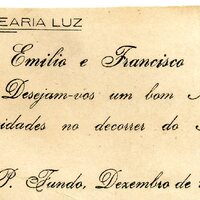 EARIA LUZ
Emilio e Francisco
Desejam-vos um bom
idades no decorrer do
P. Fundo, Dezembro de